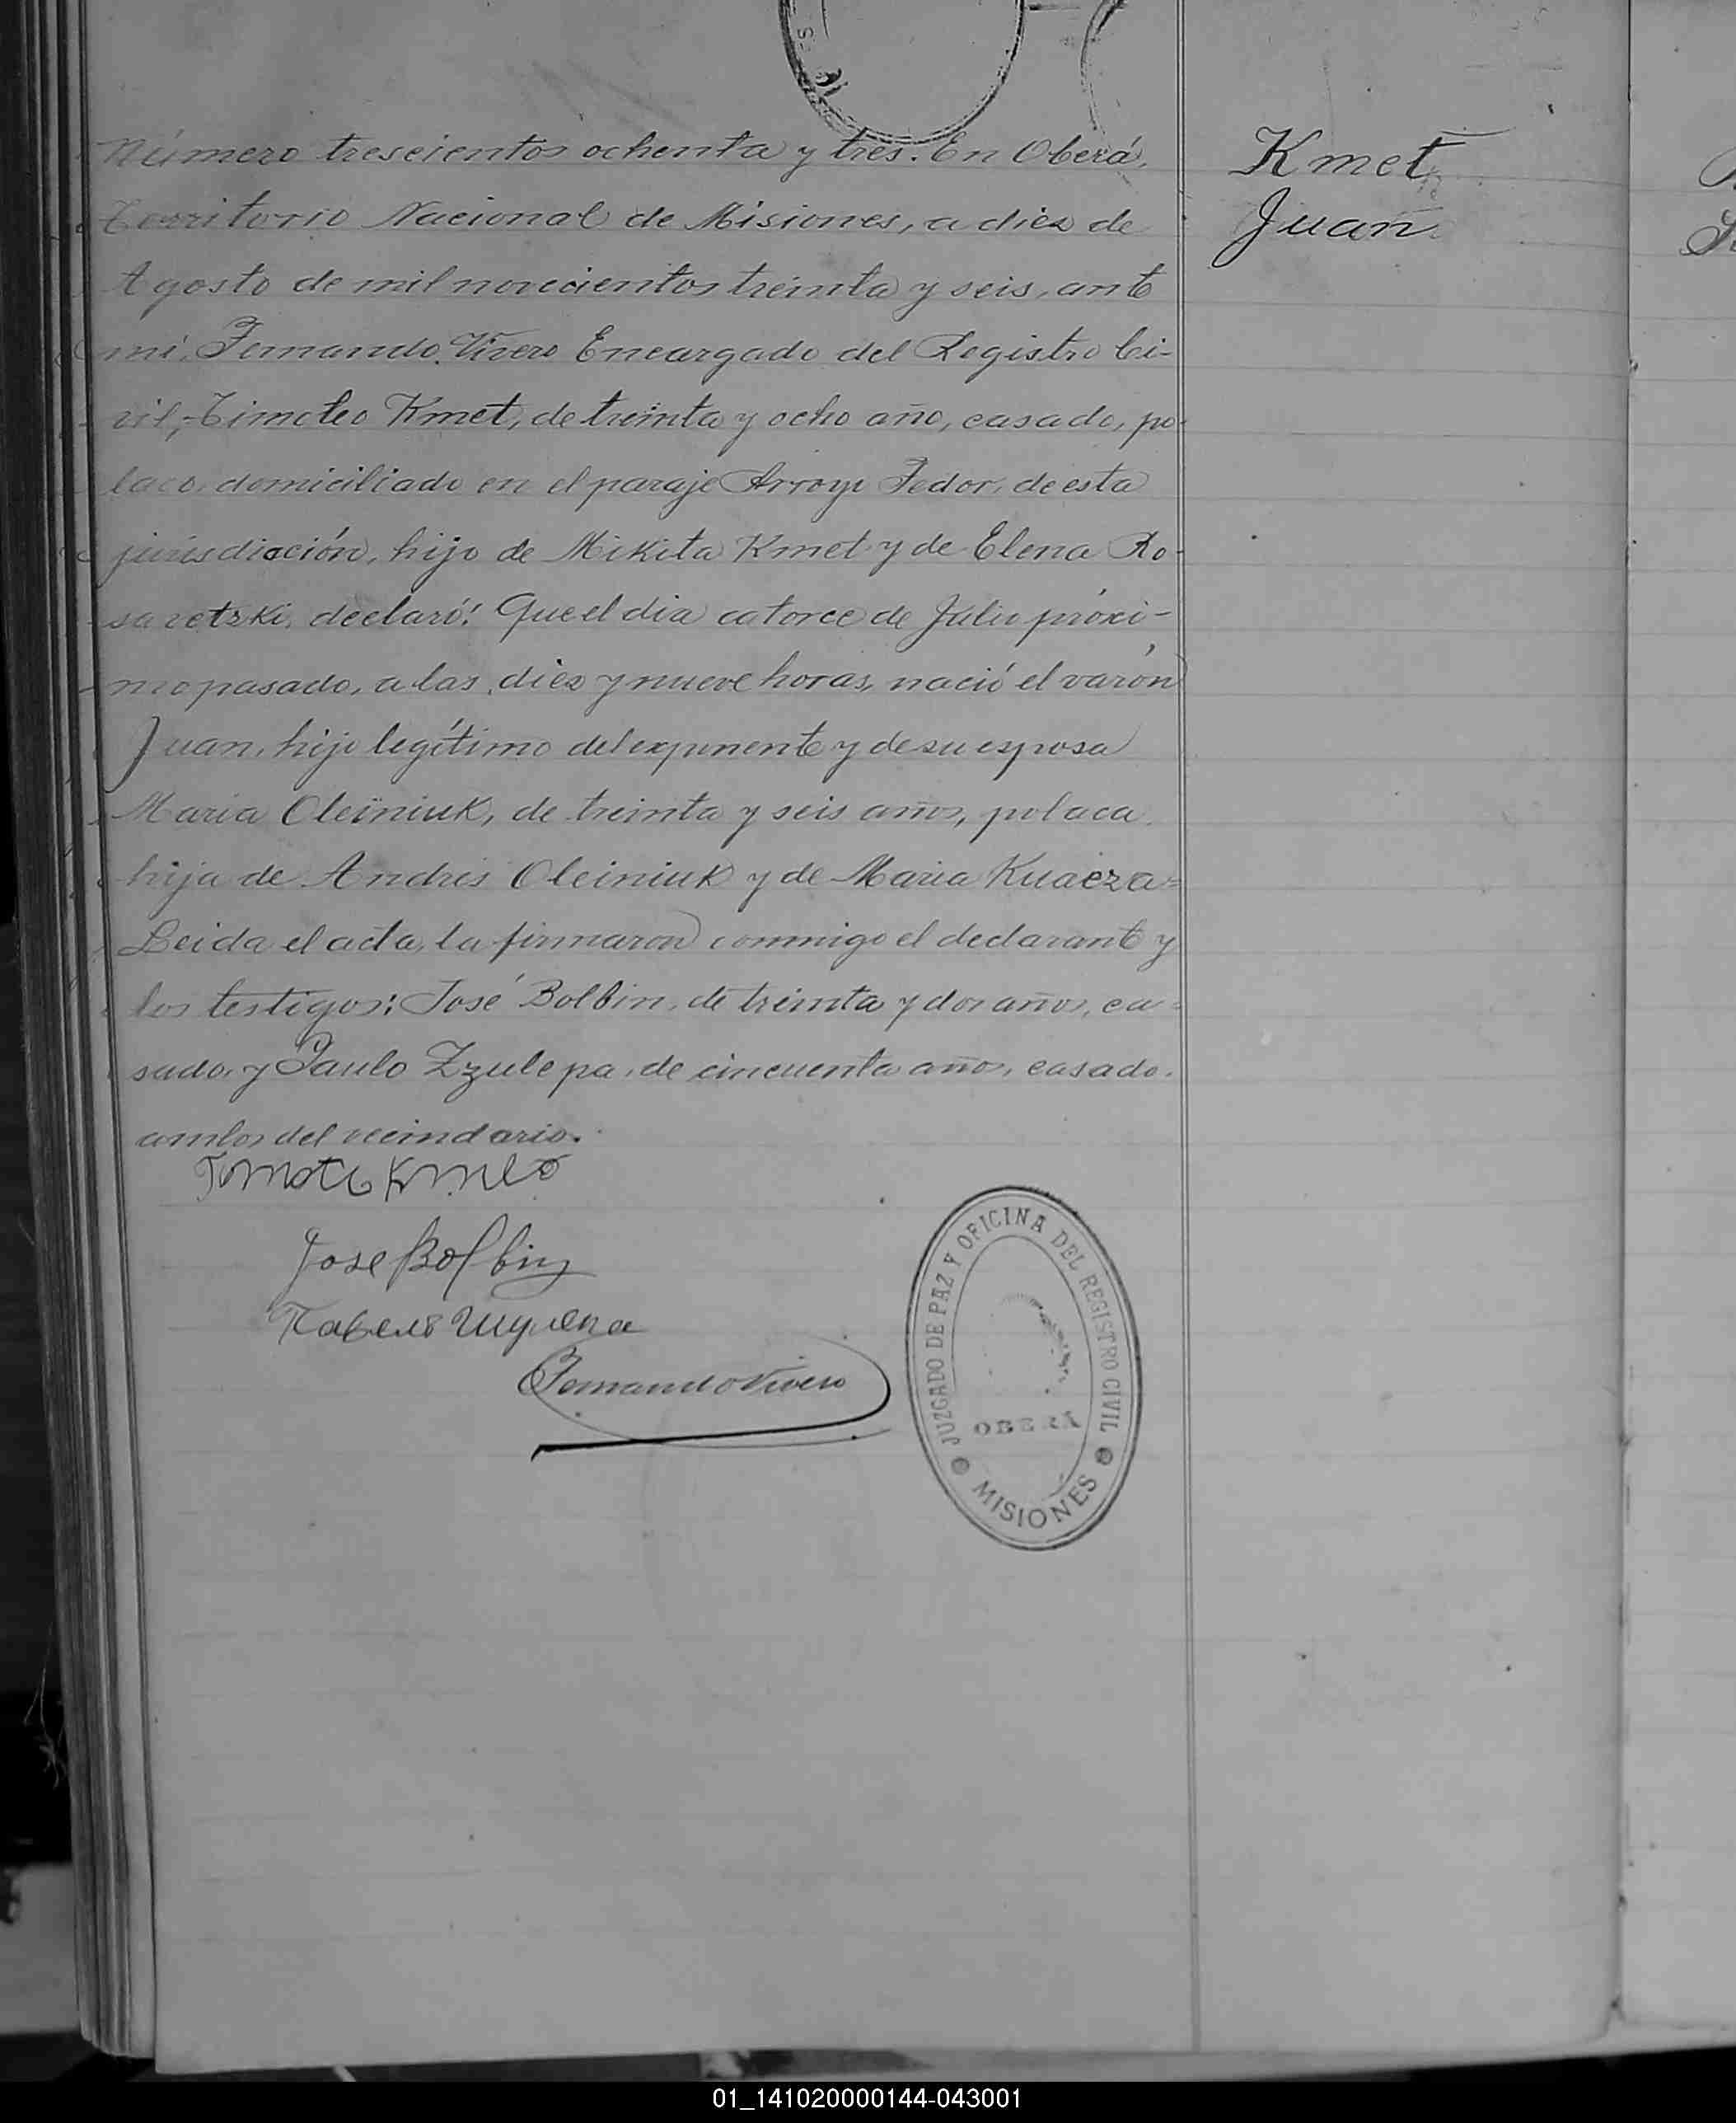 Número trescientos ochenta y tres. En Oberá,
Territorio Nacional de Misiones, a diez de
Agosto de mil novecientos treinta y seis, ante
mí, Fernando Vivero Encargado del Registro Ci-
vil, Timoteo Kmet, de treinta y ocho año, casado, po-
laco, domiciliado en el paraje Arroyo Fedor, de esta
jurisdicción, hijo de Mikita Kmet y de Elena Ro-
savetzki, declaró: Que el dia catorce de Julio próxi-
mo pasado, a las diez y nueve horas, nació el varón
Juan, hijo legítimo del exponente y de su esposa
Maria Oleiniuk, de treinta y seis años, polaca,
hija de Andrés Oleiniuk y de Maria Kuacza=
Leida el acta, la firmaron conmigo el declarante y
los testigos: José Bolbin, de treinta y dos años, ca=
sado, y Paulo Zzulepa, de cincuenta años, casado,
ambos del vecindario.
Kmet
Juan
Jose Bolbin
Павелъ Шулепа
Fernando Vivero
JUZGADO DE PAZ Y OFICINA DEL REGISTRO CIVIL
OBERA
MISIONES
01_141020000144-043001